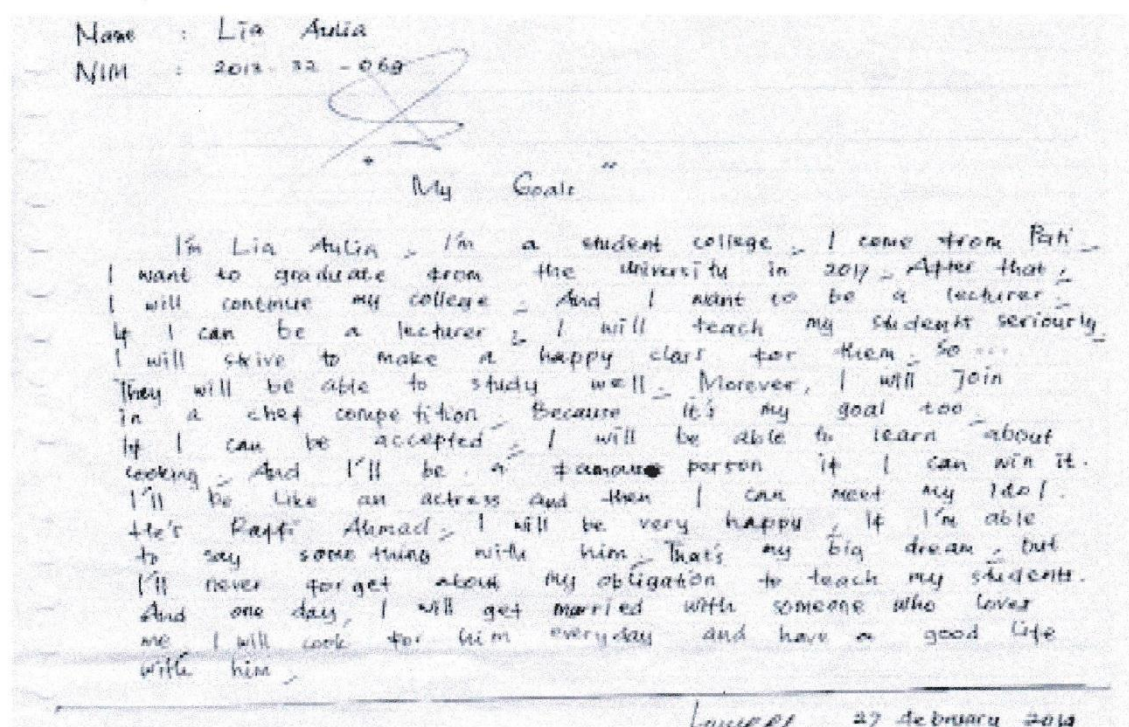 Name : Lia Aulia
NIM : 2013-32-069
" My Goals "
I'm Lia Aulia. I'm a student college. I come from Pati.
I want to graduate from the university in 2017. After that,
I will continue my college. And I want to be a lecturer.
If I can be a lecturer, I will teach my students seriously.
I will strive to make a happy class for them. So ...
They will be able to study well. Morever, I will Join
in a chef competition. Because it's my goal too.
If I can be accepted, I will be able to learn about
cooking. And I'll be a famous person if I can win it.
I'll be like an actress and then I can meet my Idol.
He's Raffi Ahmad. I will be very happy, If I'm able
to say something with him. That's my big dream, but
I'll never forget about my obligation to teach my students.
And one day, I will get married with someone who loves
me. I will cook for him everyday and have a good life
with him.
27 february